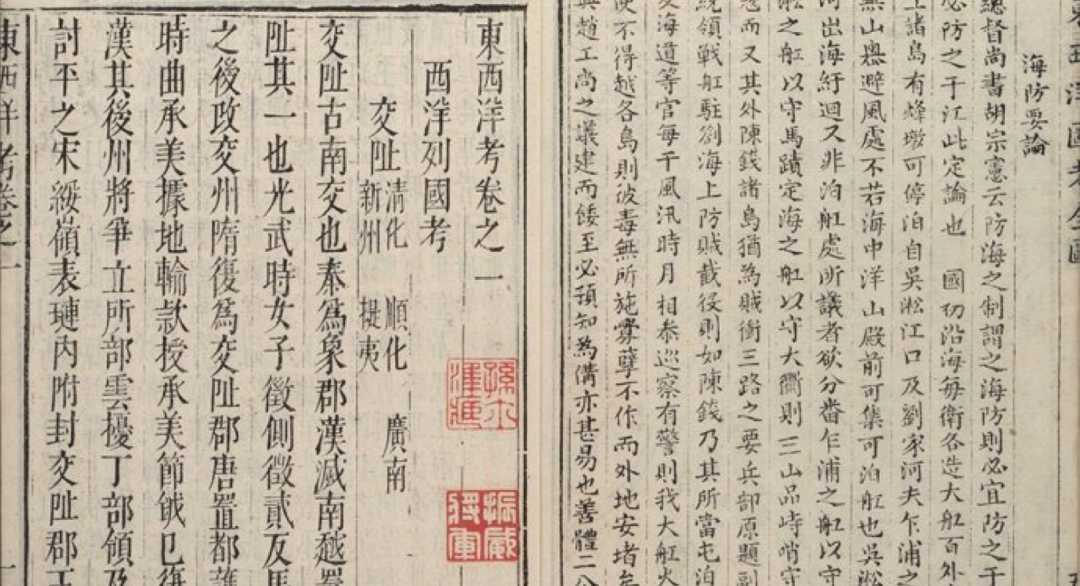 海防要論
總督尚書胡宗憲云防海之制謂之海防則必宜防之于
必防之于江此定論也 國初沿海每衛各造大舡百外
上諸島有烽墩可停泊自吳淞江口及劉家河夫乍浦之
無山嶴避風處不若海中洋山殿前可集可泊舡也吳淞
河出海紆迴又非泊舡處所議者欲分畨乍浦之舡以守
淞之舡以守馬蹟定海之舡以守大衢則三山品峙哨守
而又其外陳錢諸島猶為賊衝三路之要兵部原題副
統領戰舡駐劄海上防賊截殺則如陳錢乃其所當屯泊
海道等官每于風汛時月相叅巡察有警則我大舡火
使不得越各島則彼毒無所施釁孽不作而外地安堵矣
趙工尚之議建而倭至必預知為備亦甚易也善體二公
東西洋考卷之一
西洋列國考
交阯 清化 順化 廣南
新州 提夷
交阯古南交也秦為象郡漢滅南越置
阯其一也光武時女子徵側徵貳反馬
之後改交州隋復為交阯郡唐置都護
時曲承美據地輸款授承美節鉞已復
漢其後州將爭立所部雲擾丁部領乃
討平之宋綏嶺表璉內附封交阯郡王
東西洋考卷之一